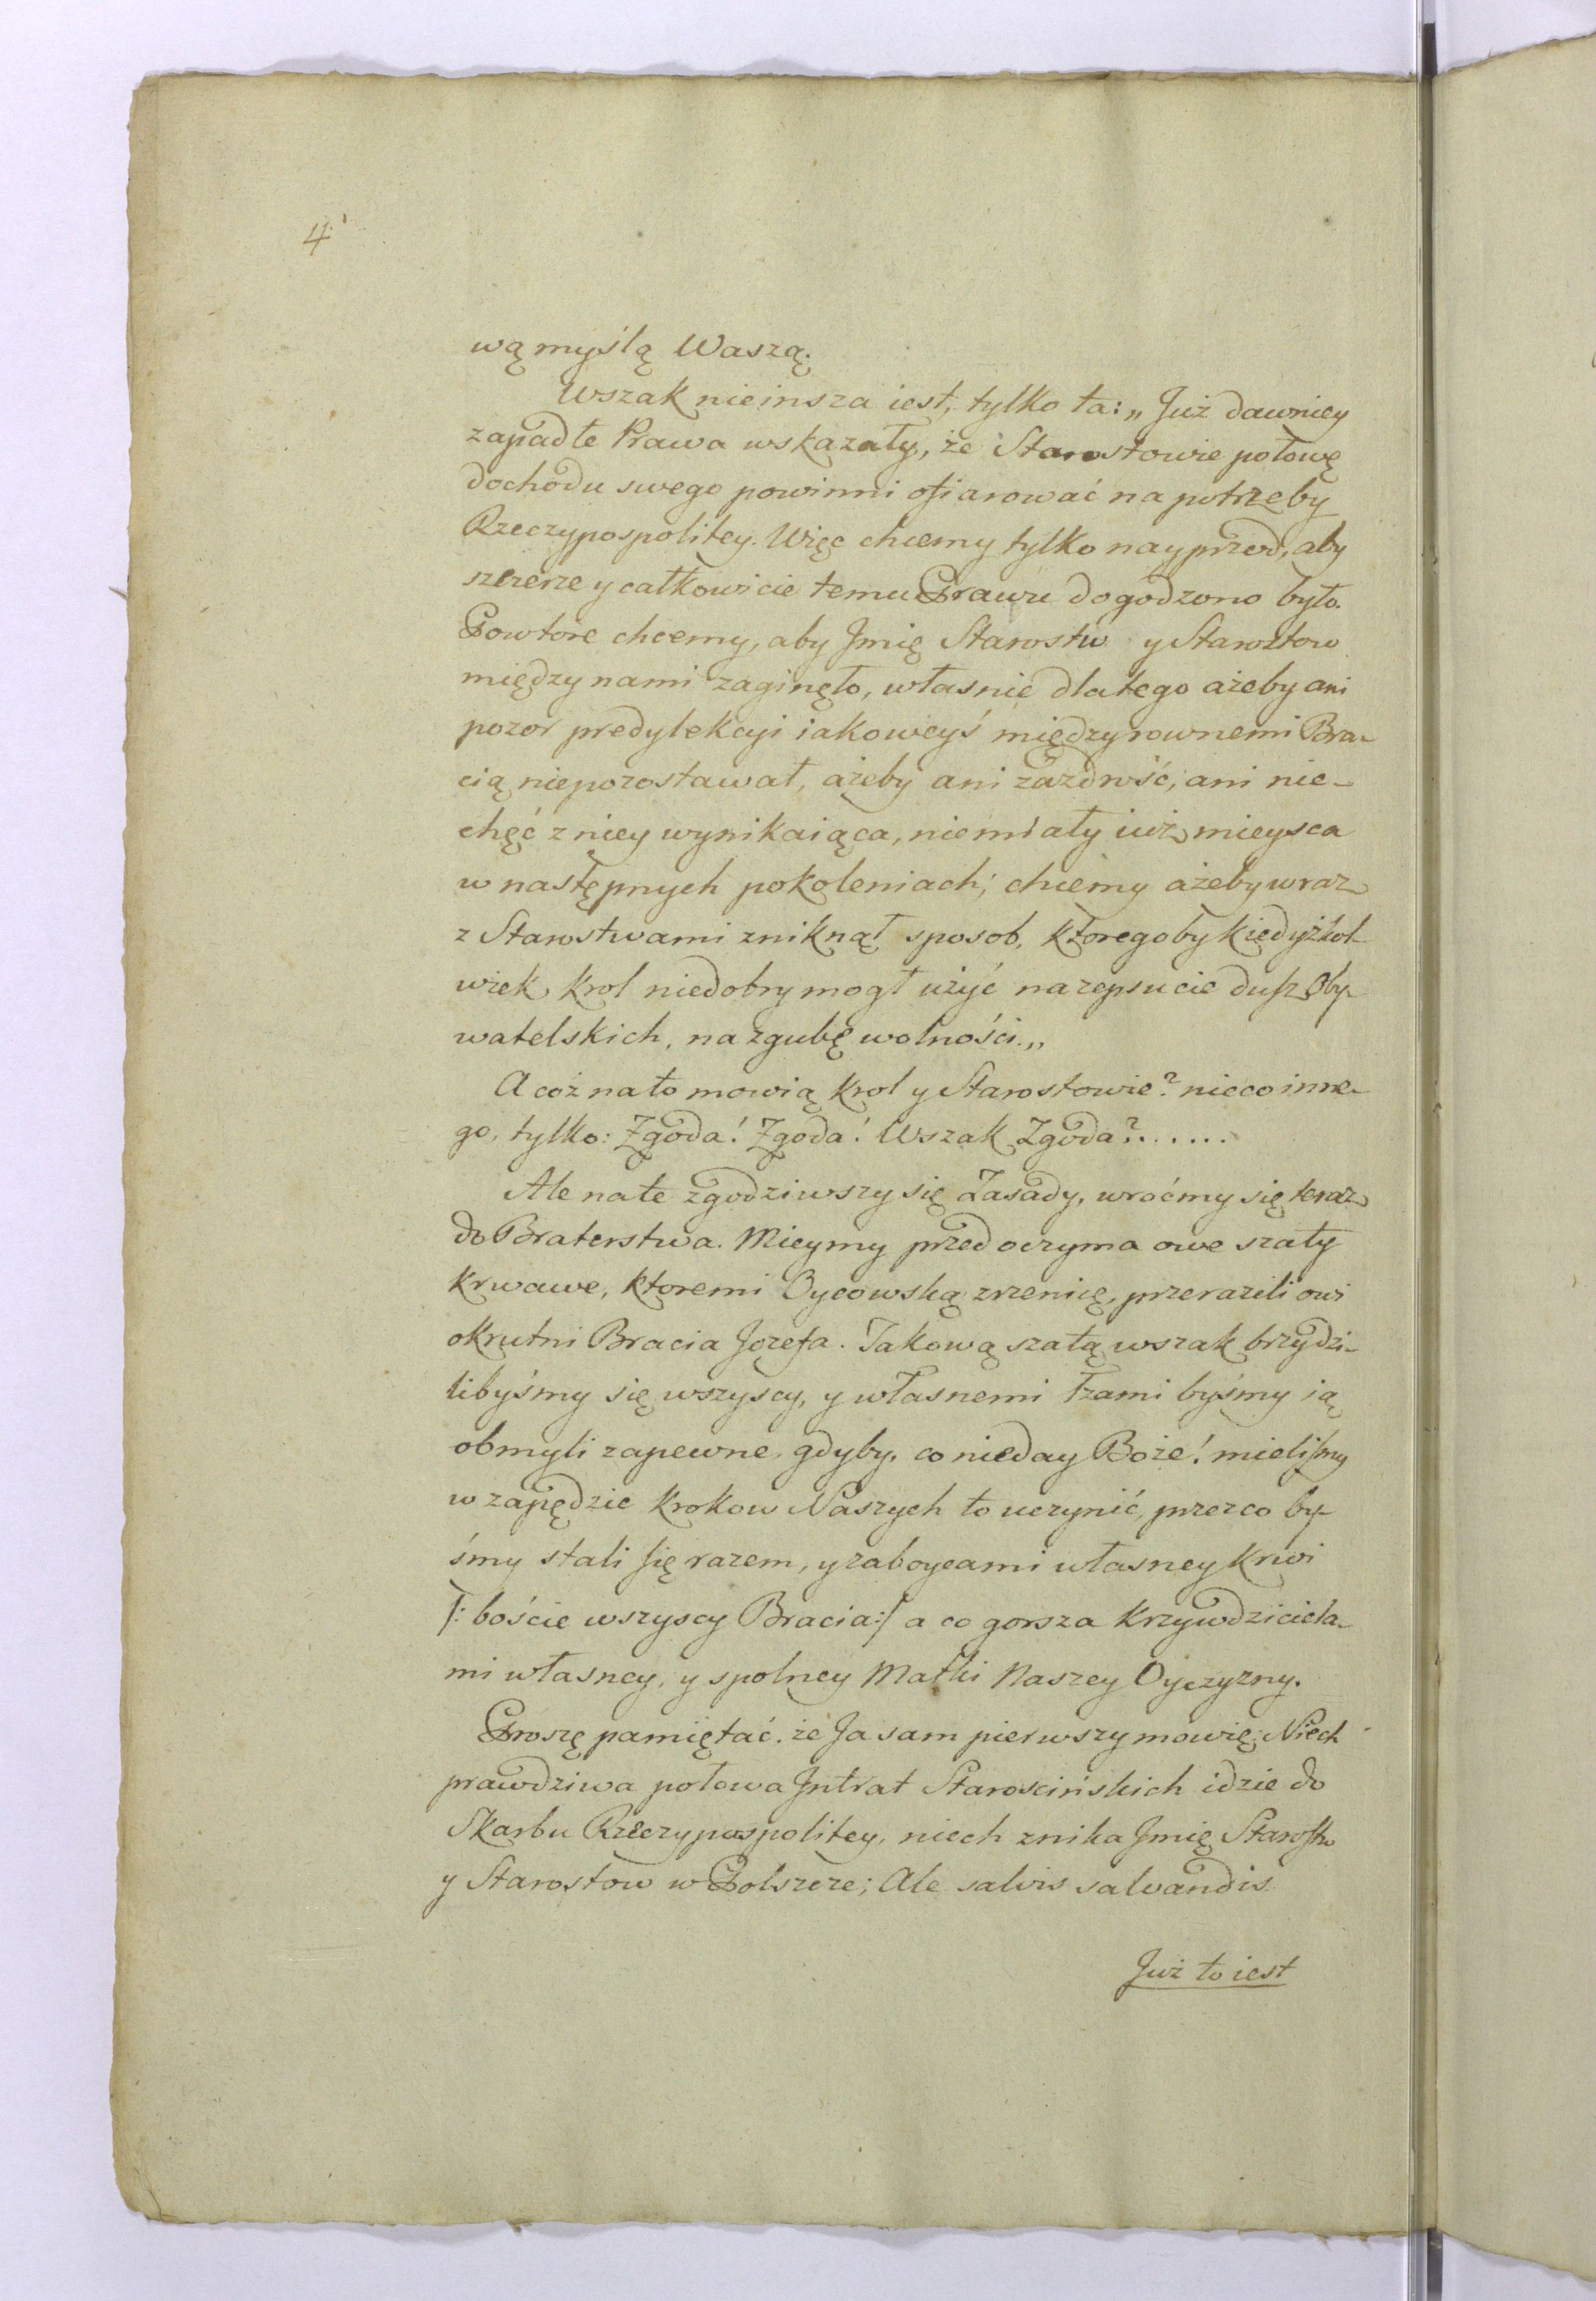 4.
wą myślą Waszą.
Wszak nieinsza iest, tylko ta: „ Już dawniey
zapadłe Prawa wskazały, że Starostowie połowę
dochodu swego powinni ofiarować na potrzeby
Rzeczypospolitey. Więc chcemy tylko nayprzod, aby
szczerze y całkowicie temu Prawu dogodzono było.
Powtore chcemy, aby Jmię Starostw y Starostow
między nami zaginęło, własnie dlatego ażeby ani
pozor predylekcyi iakoweyś między rownemi Bra-
cią niepozostawał, ażeby ani zazdrość, ani nie-
chęć z niey wynikaiąca, niemiały iuż mieysca
w następnych pokoleniach; chcemy ażeby wraz
z Starostwami zniknął sposob, ktoregoby kiedyżkol-
wiek Krol niedobry mogł użyć na zepsucie dusz Oby-
watelskich, na zgubę wolności.„
A coż na to mowią Krol y Starostowie? nieco inne-
go, tylko: Zgoda! Zgoda! Wszak Zgoda?......
Ale na te zgodziwszy się Zasady, wroćmy się teraz
do Braterstwa. Mieymy przed oczyma owe szaty
krwawe, ktoremi Oycowską zrzenicę, przerazili owi
okrutni Bracia Jozefa. Takową szatą wszak brzydzi-
libyśmy się wszyscy, y własnemi łzami byśmy ią
obmyli zapewne, gdyby, co nieday Boże! mielismy
w zapędzie krokow Naszych to uczynić, przez co by-
śmy stali się razem, y zaboycami własney krwi
/: boście wszyscy Bracia :/ a co gorsza krzywdziciela-
mi własney, y spolney Matki Naszey Oyczyzny.
Proszę pamiętać, że Ja sam pierwszy mowię: Niech
prawdziwa połowa Jntrat Starościńskich idzie do
Skarbu Rzeczypospolitey, niech znika Jmię Starostw
y Starostow w Polszcze; Ale salvis salvandis.
Już to iest